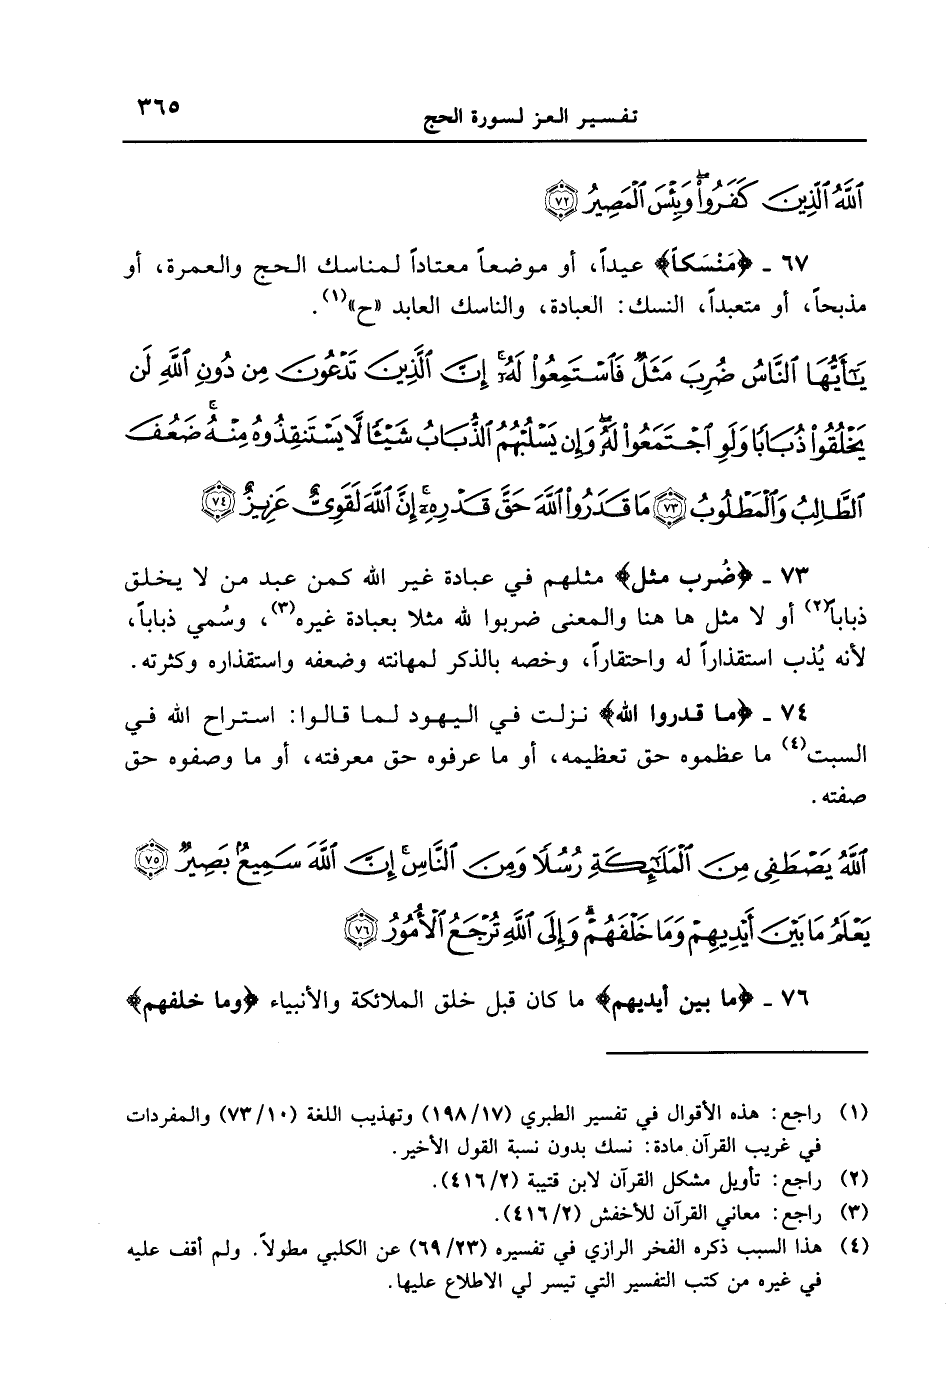 تفسير العز لسورة الحج
٣٦٥
ٱللَّهُ ٱلَّذِينَ كَفَرُواْۖ وَبِئْسَ ٱلْمَصِيرُ ٧٢
٦٧ ـ ﴿مَنْسَكاً﴾ عيداً، أو موضعاً معتاداً لمناسك الحج والعمرة، أو
مذبحاً، أو متعبداً، النسك: العبادة، والناسك العابد «ح»(١).
يَٰٓأَيُّهَا ٱلنَّاسُ ضُرِبَ مَثَلٌ فَٱسْتَمِعُواْ لَهُۥٓۚ إِنَّ ٱلَّذِينَ تَدْعُونَ مِن دُونِ ٱللَّهِ لَن
يَخْلُقُواْ ذُبَابًا وَلَوِ ٱجْتَمَعُواْ لَهُۥۖ وَإِن يَسْلُبْهُمُ ٱلذُّبَابُ شَيْـًٔا لَّا يَسْتَنقِذُوهُ مِنْهُۚ ضَعُفَ
ٱلطَّالِبُ وَٱلْمَطْلُوبُ ٧٣ مَا قَدَرُواْ ٱللَّهَ حَقَّ قَدْرِهِۦٓۚ إِنَّ ٱللَّهَ لَقَوِىٌّ عَزِيزٌ ٧٤
٧٣ ـ ﴿ضُرب مثل﴾ مثلهم في عبادة غير الله كمن عبد من لا يخلق
ذباباً(٢) أو لا مثل ها هنا والمعنى ضربوا لله مثلا بعبادة غيره(٣)، وسُمي ذباباً،
لأنه يُذب استقذاراً له واحتقاراً، وخصه بالذكر لمهانته وضعفه واستقذاره وكثرته.
٧٤ ـ ﴿ما قدروا الله﴾ نزلت في اليهود لما قالوا: استراح الله في
السبت(٤) ما عظموه حق تعظيمه، أو ما عرفوه حق معرفته، أو ما وصفوه حق
صفته.
ٱللَّهُ يَصْطَفِى مِنَ ٱلْمَلَٰٓئِكَةِ رُسُلًا وَمِنَ ٱلنَّاسِۚ إِنَّ ٱللَّهَ سَمِيعٌۢ بَصِيرٌ ٧٥
يَعْلَمُ مَا بَيْنَ أَيْدِيهِمْ وَمَا خَلْفَهُمْۗ وَإِلَى ٱللَّهِ تُرْجَعُ ٱلْأُمُورُ ٧٦
٧٦ ـ ﴿ما بين أيديهم﴾ ما كان قبل خلق الملائكة والأنبياء ﴿وما خلفهم﴾
(١) راجع: هذه الأقوال في تفسير الطبري (١٧/ ١٩٨) وتهذيب اللغة (١٠/ ٧٣) والمفردات
في غريب القرآن مادة: نسك بدون نسبة القول الأخير.
(٢) راجع: تأويل مشكل القرآن لابن قتيبة (٢/ ٤١٦).
(٣) راجع: معاني القرآن للأخفش (٢/ ٤١٦).
(٤) هذا السبب ذكره الفخر الرازي في تفسيره (٢٣/ ٦٩) عن الكلبي مطولاً. ولم أقف عليه
في غيره من كتب التفسير التي تيسر لي الاطلاع عليها.